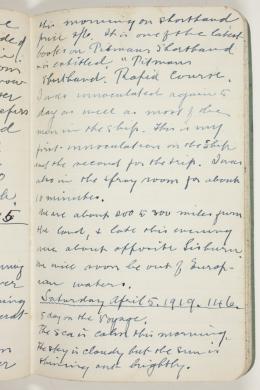 this morning on shorthand
price 3/6. It is one of the latest
books on Pitmans Shorthand
is entitled, "Pitmans
Shorthand. Rapid Course.
I was innoculated again to
day as well as most of the
men in the Ship. This is my
first innoculation on the Ship
and the second for the trip. I was
also in the spray room for about
10 minutes.
We are about 200 to 300 miles from
the land, & late this evening
are about opposite Lisburn.
We will soon be out of Europ-
ean waters.
Saturday April 5. 1919. 146.
5 day on the Voyage.
The sea is calm this morning.
The sky is cloudy but the sun is
shining and brightly.